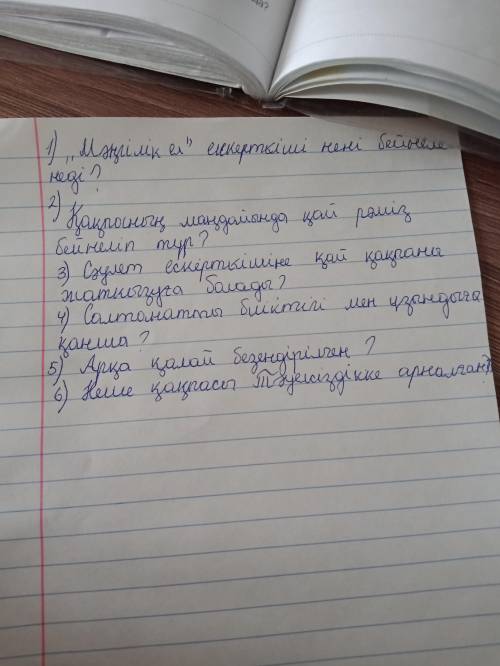 1) „Мәңгілік ел" ескерткіші нені бейнеле
неді?
2)
Қақпаның маңдайында қай рәміз
бейнеліп тұр?
3) Сәулет ескерткішіне қай қақпаны
жатқызуға болады?
4) Салтанатты биіктігі мен ұзындығы
қанша?
5) Арқа қалай безендірілген?
6) Неше қақпасы Тәуелсіздікке арналған?